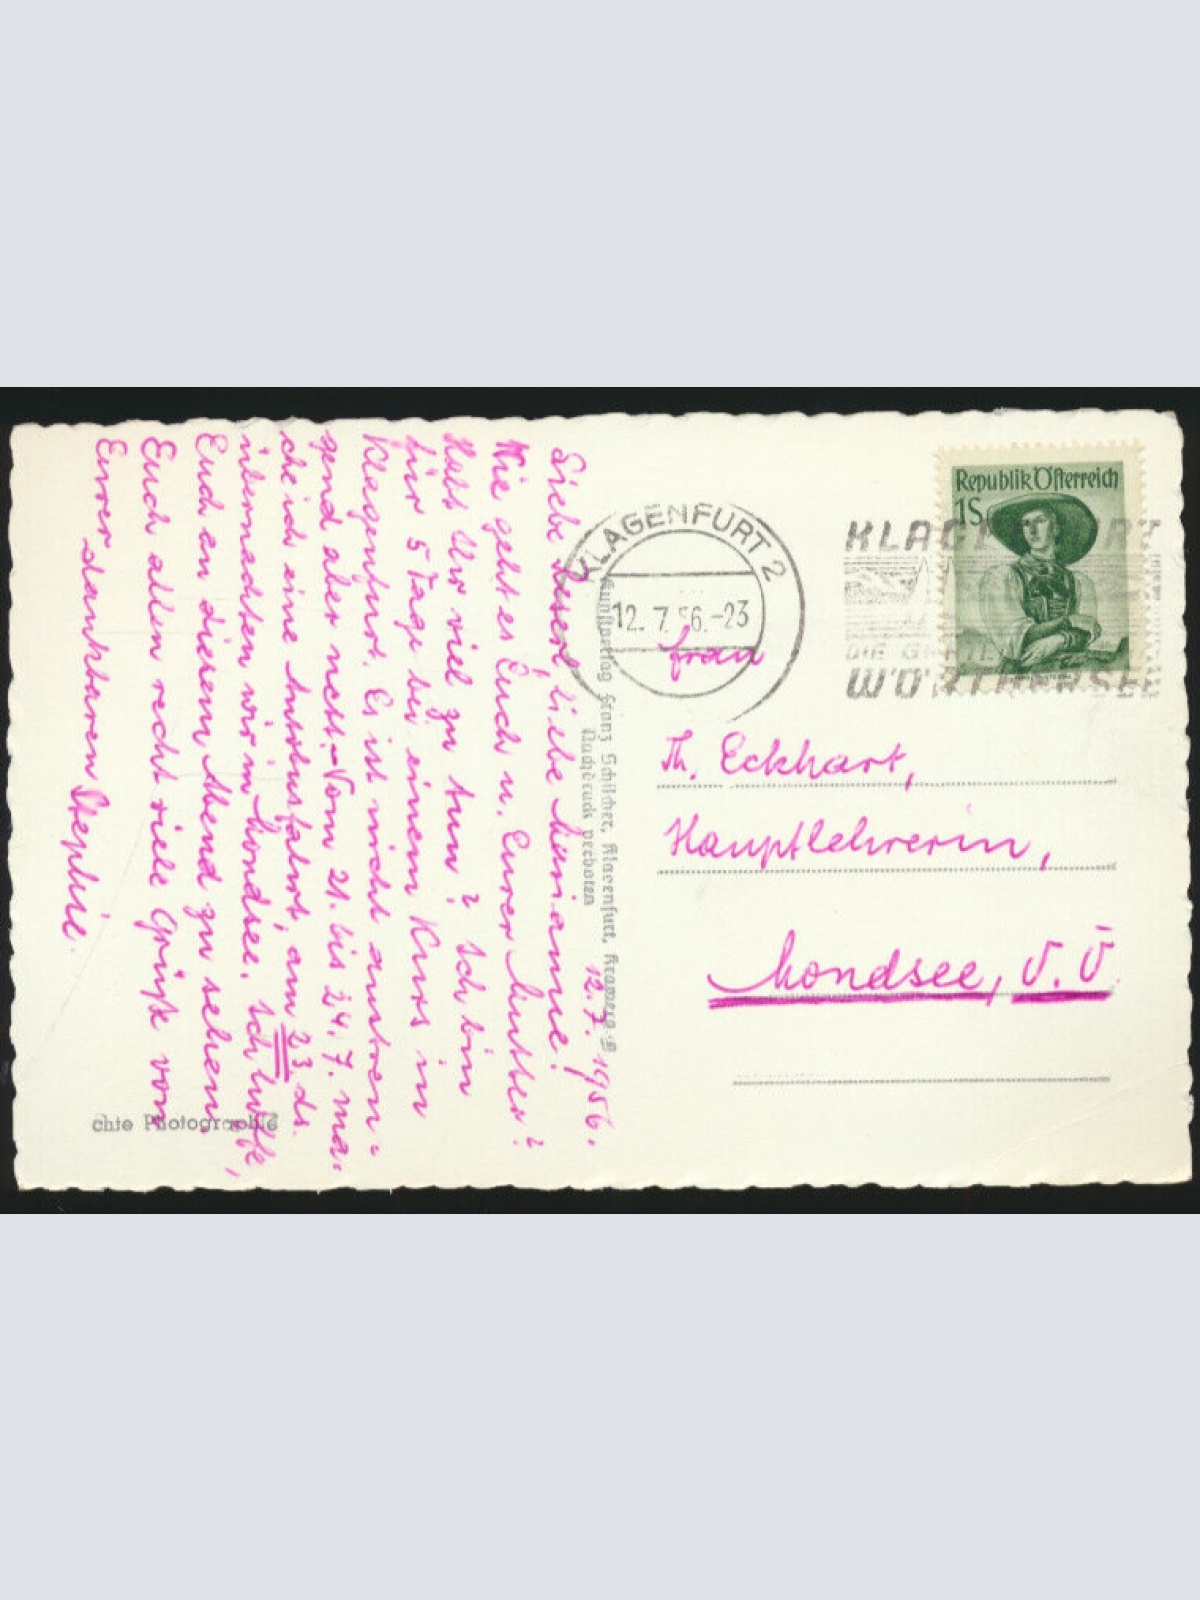 12.7.1956.
Liebe Reserl, liebe Marianne!
Wie geht es Euch u. Eurer Mutter?
Habt Ihr viel zu tun? Ich bin
für 5 Tage bei einem Kurs in
Klagenfurt. Es ist nicht anstren-
gend aber nett. – Vom 21. bis 24. 7. ma-
che ich eine Autobusfahrt, am 23. ds.
übernachten wir in Mondsee. Ich hoffe,
Euch an diesem Abend zu sehen.
Euch allen recht viele Grüße von
Eurer dankbaren Stephie.
Kunstverlag Franz Schilcher, Klagenfurt,
Nachdruck verboten
chte Photographie
KLAGENFURT 2
12. 7. 56.-23
Republik Österreich
1S
KLAGENFURT
WÖRTHERSEE
Frau
Th. Eckhart,
Hauptlehrerin,
Mondsee, O.Ö.